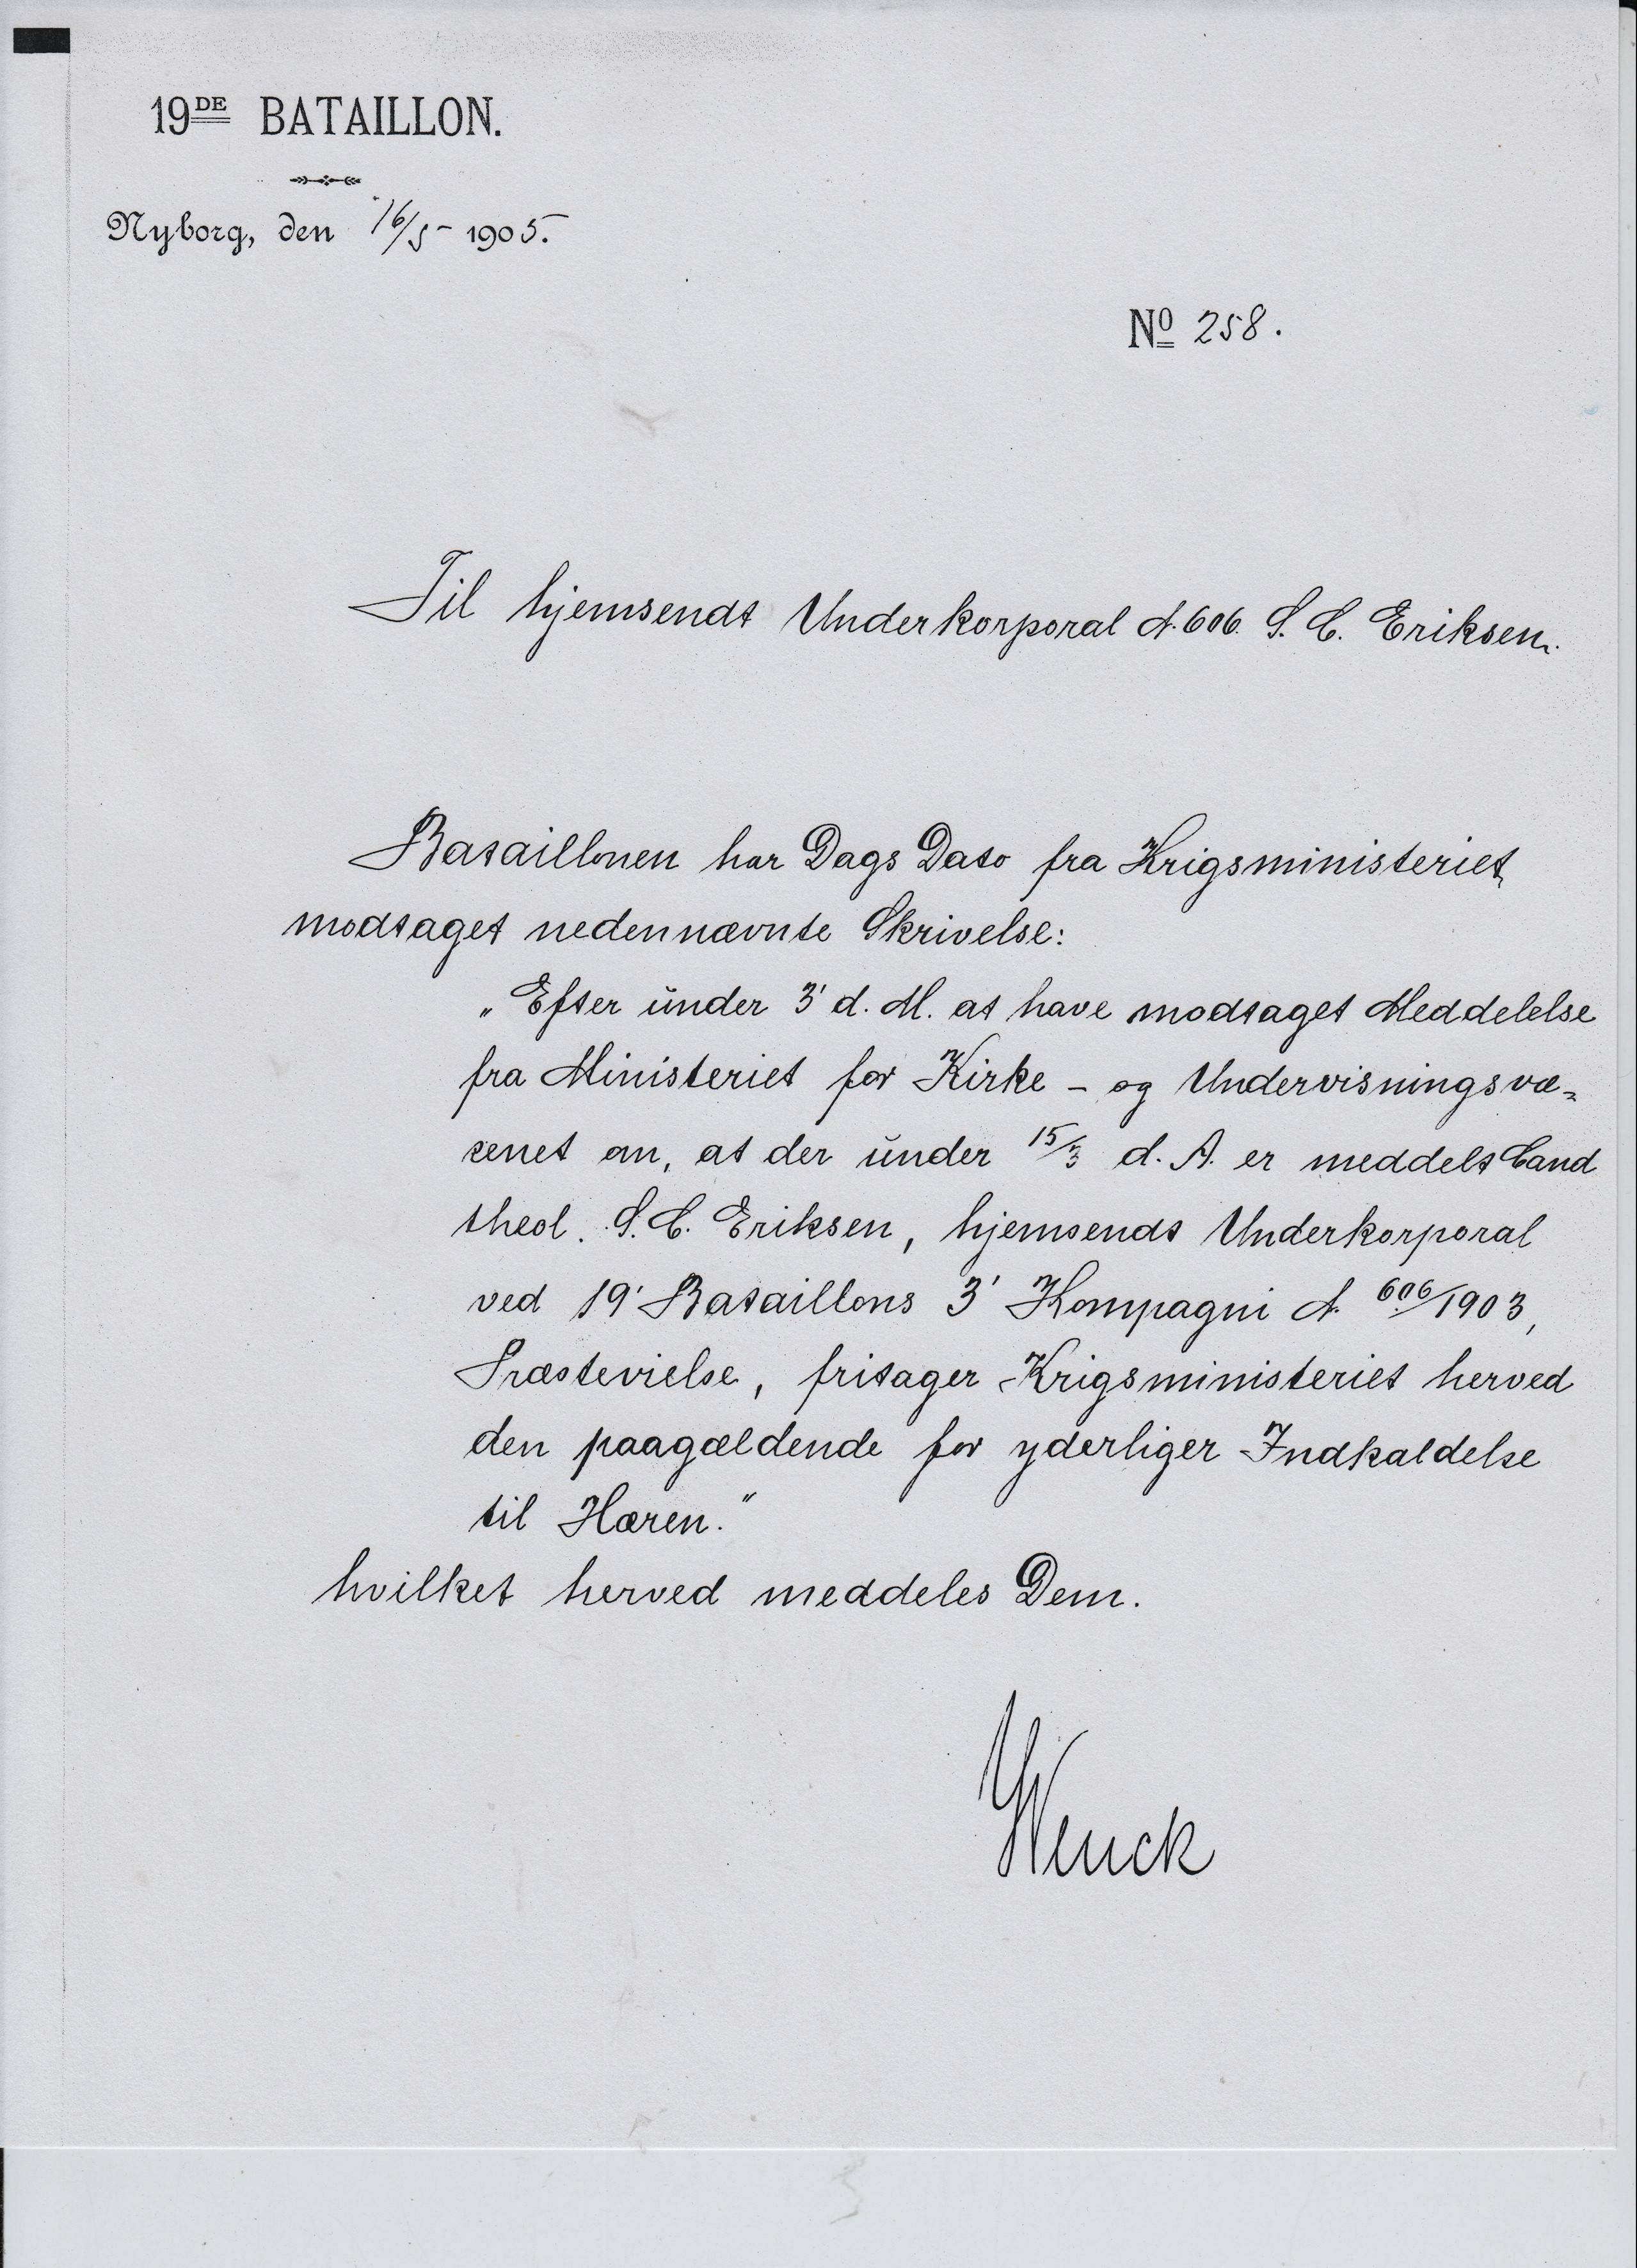 19DE BATAILLON.
Nyborg, den 16/5 - 1905.
No 258.
Til hjemsendt Underkorporal N. 606. S. C. Eriksen.
Bataillonen har Dags Dato fra Krigsministeriet
modtaget nedennævnte Skrivelse:
„Efter under 3' d. M. at have modtaget Meddelelse
fra Ministeriet for Kirke - og Undervisningsvæ-
senet om, at der under 15/3 d. A. er meddelt Cand
theol. S. C. Eriksen, hjemsendt Underkorporal
ved 19' Bataillons 3' Kompagni N. 606/1903,
Præstevielse, fritager Krigsministeriet herved
den paagældende for yderliger Indkaldelse
til Hæren."
hvilket herved meddeles Dem.
Wenck